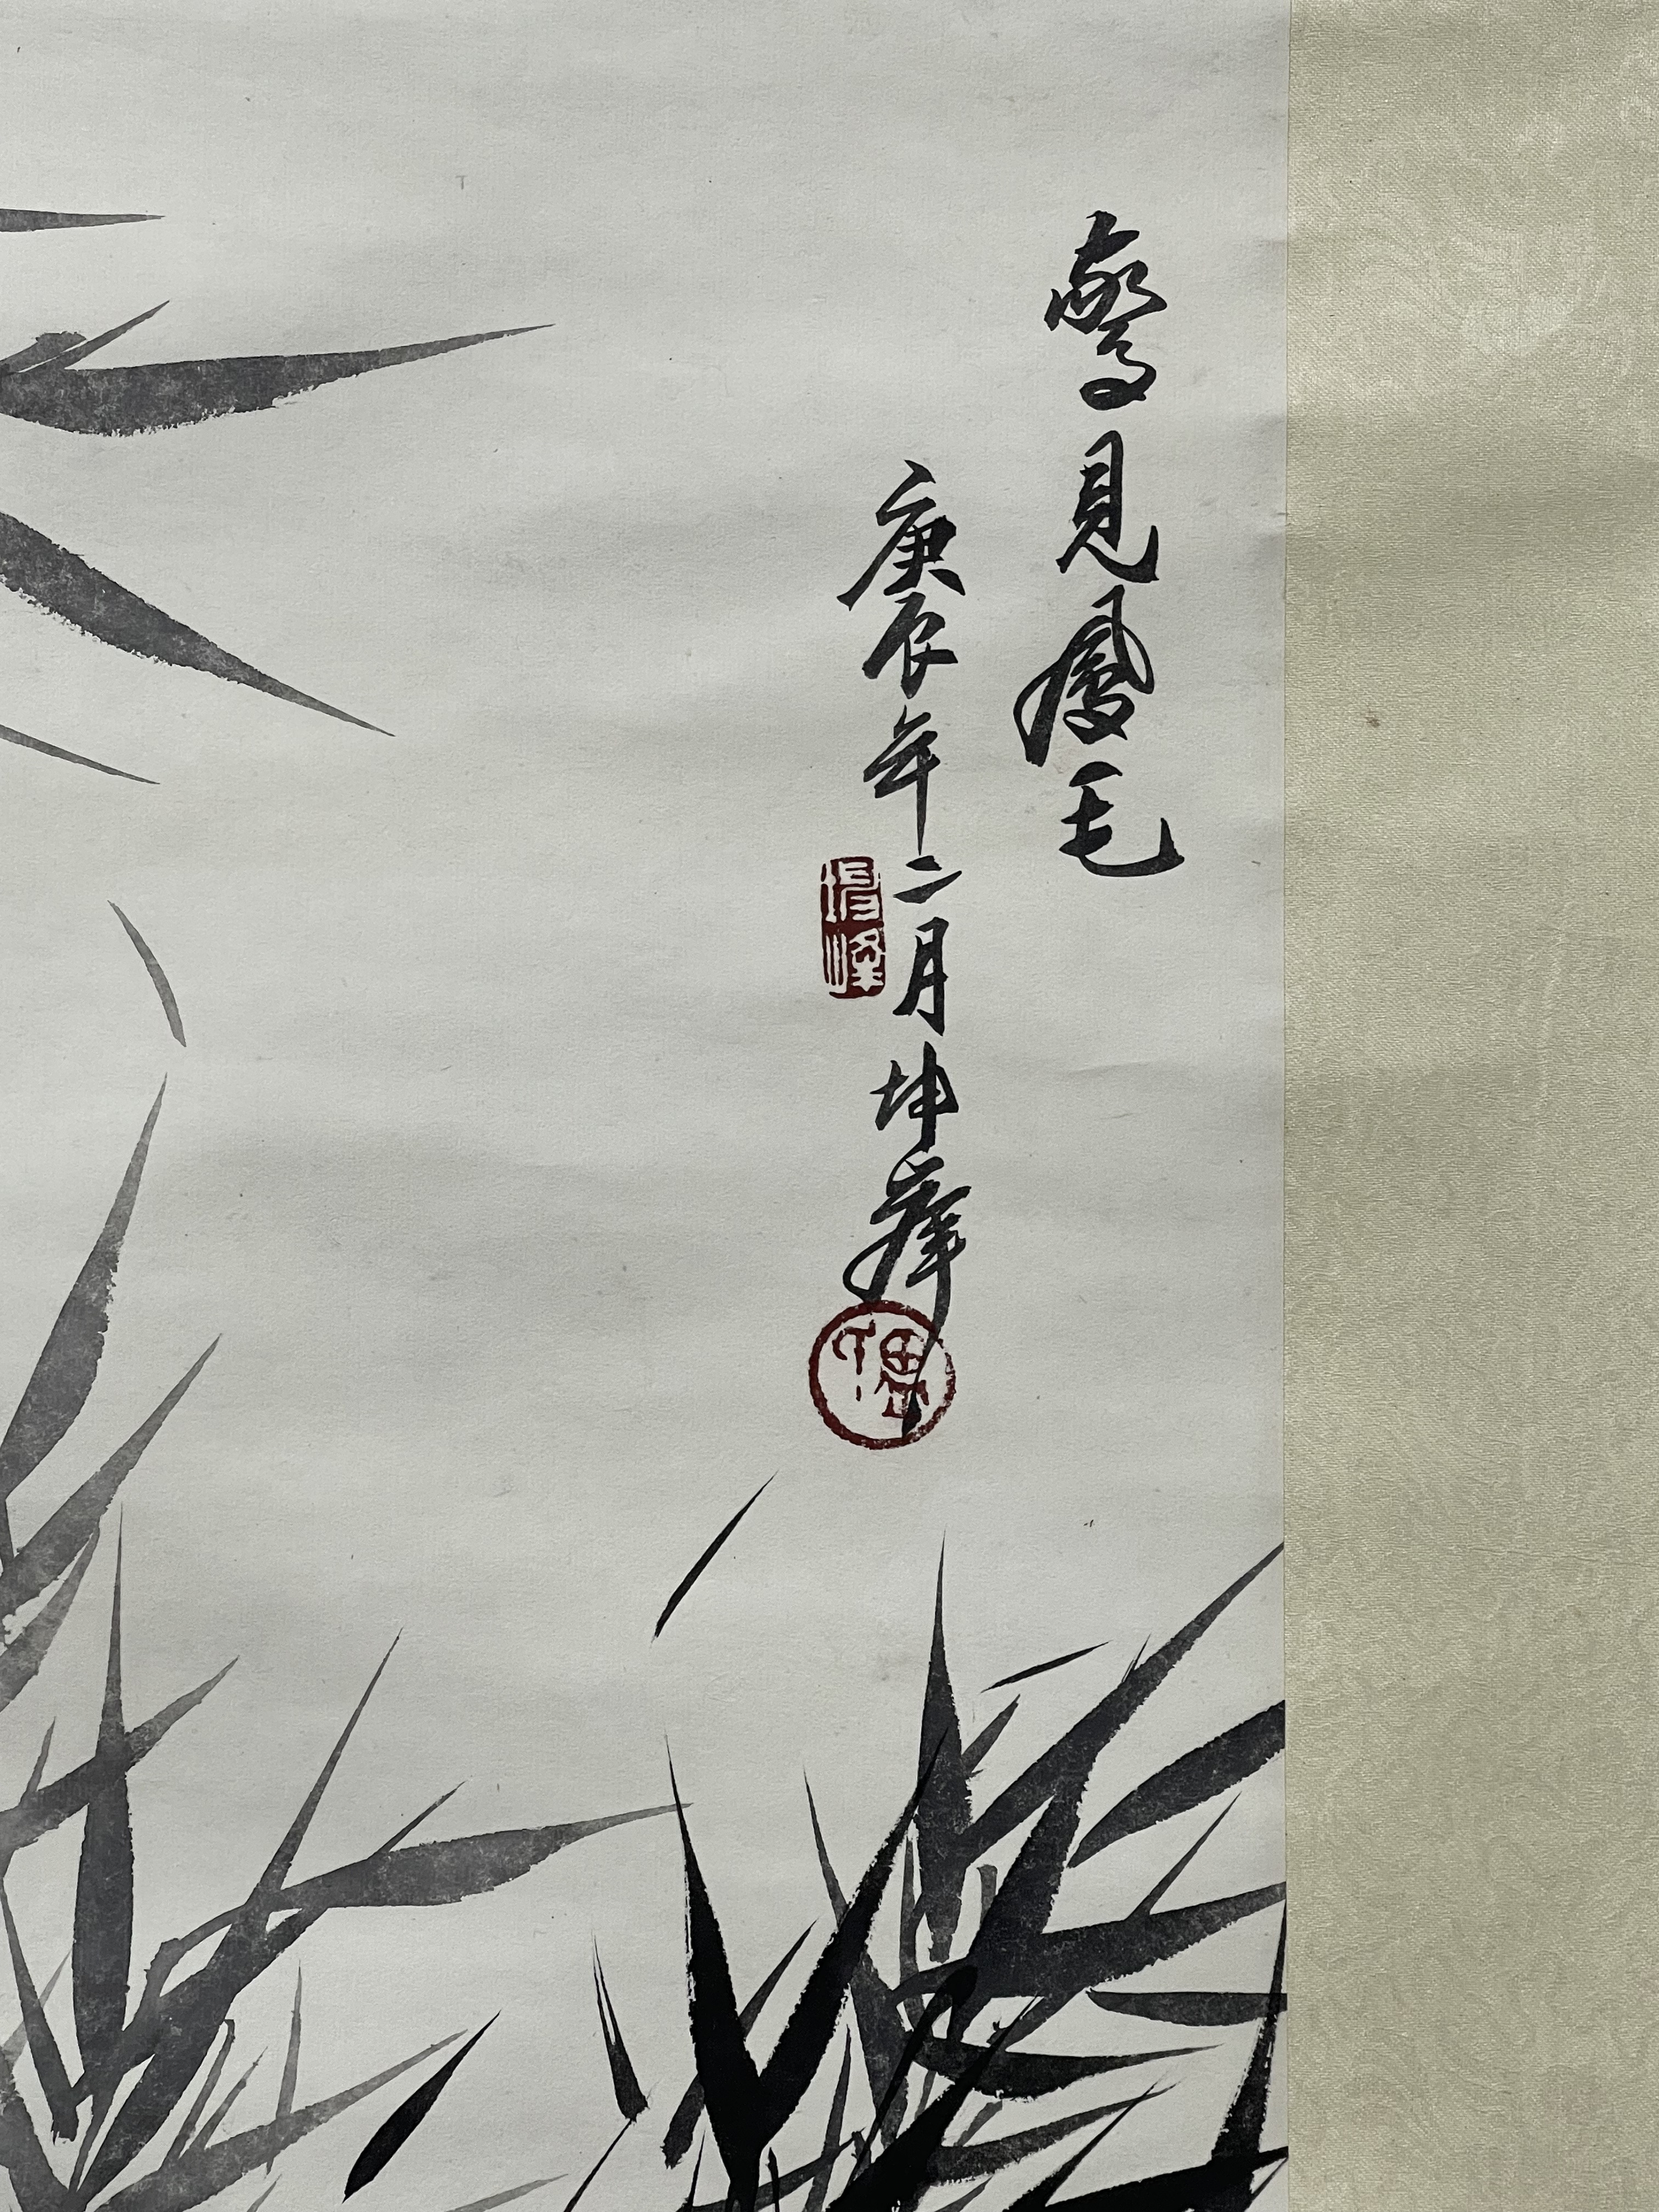 驚見鳳毛
庚辰年二月坤峰